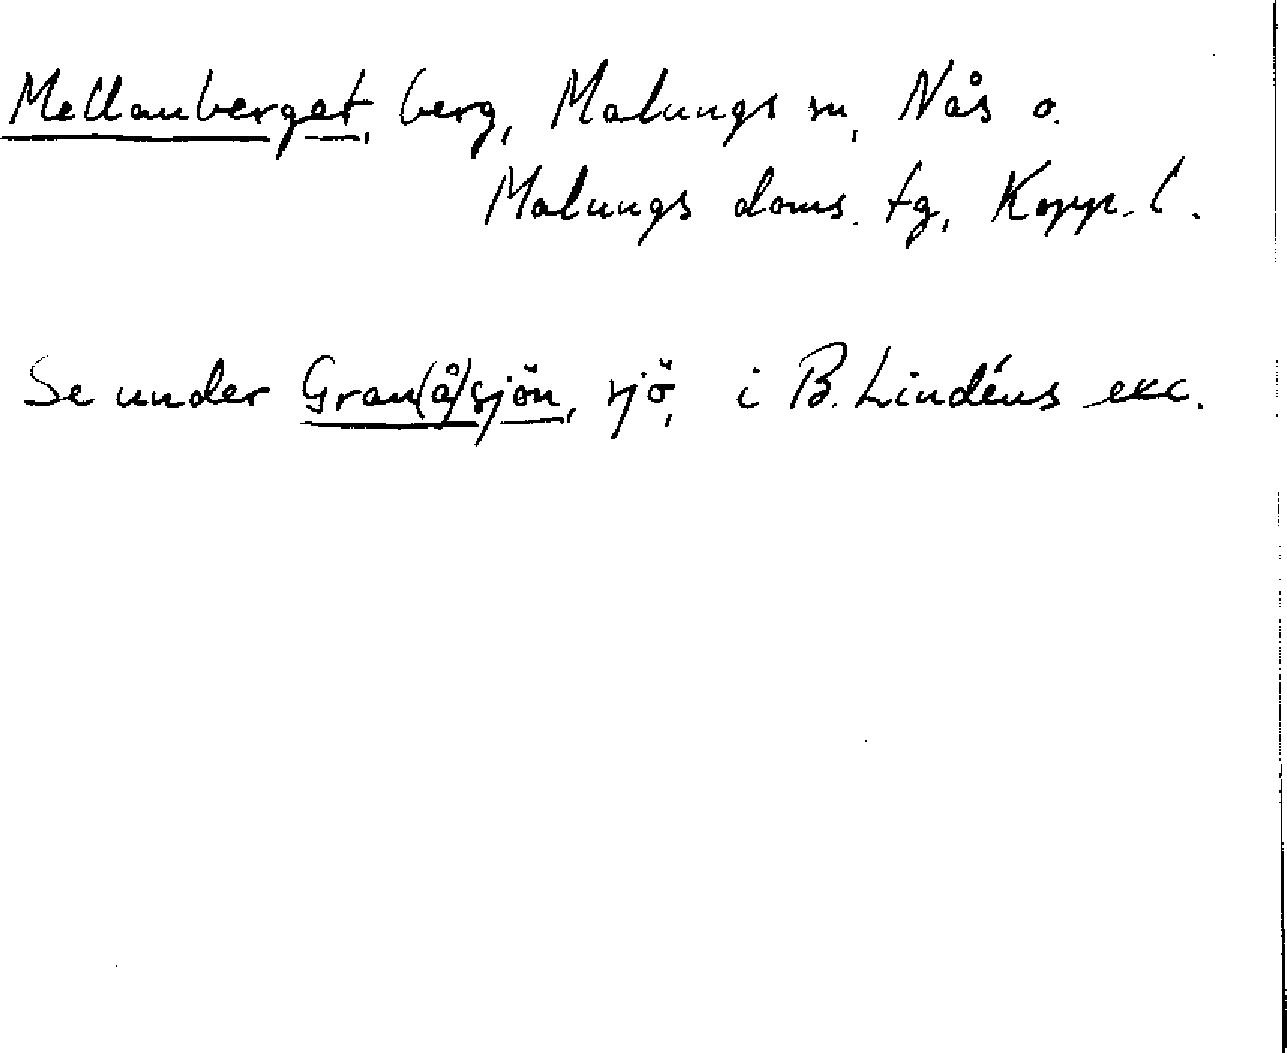 Mellanberget, berg, Malungs sn, Nås o.
Malungs doms. tg, Kopp. l.
Se under Gran(å)sjön, sjö, i B. Lindéns exc.